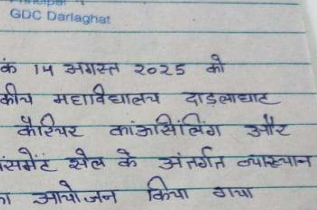 GDC Darlaghat
क 14 अगस्त 2025 को
कीय महाविद्यालय दाड़लाघाट
कैरियर कांऊसिंलिंग और
समेंट सेल के अंतर्गत व्याख्यान
आयोजन किया गया